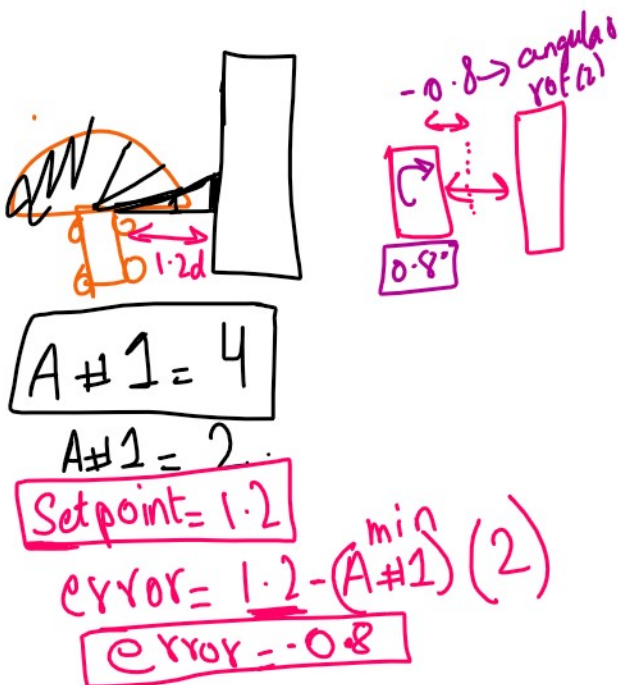 -0.8→ angular
rot(2)
1.2d
0.8°
A#1=4
A#1=2..
Setpoint=1.2
min
error=1.2-(A#1)(2)
error=-0.8